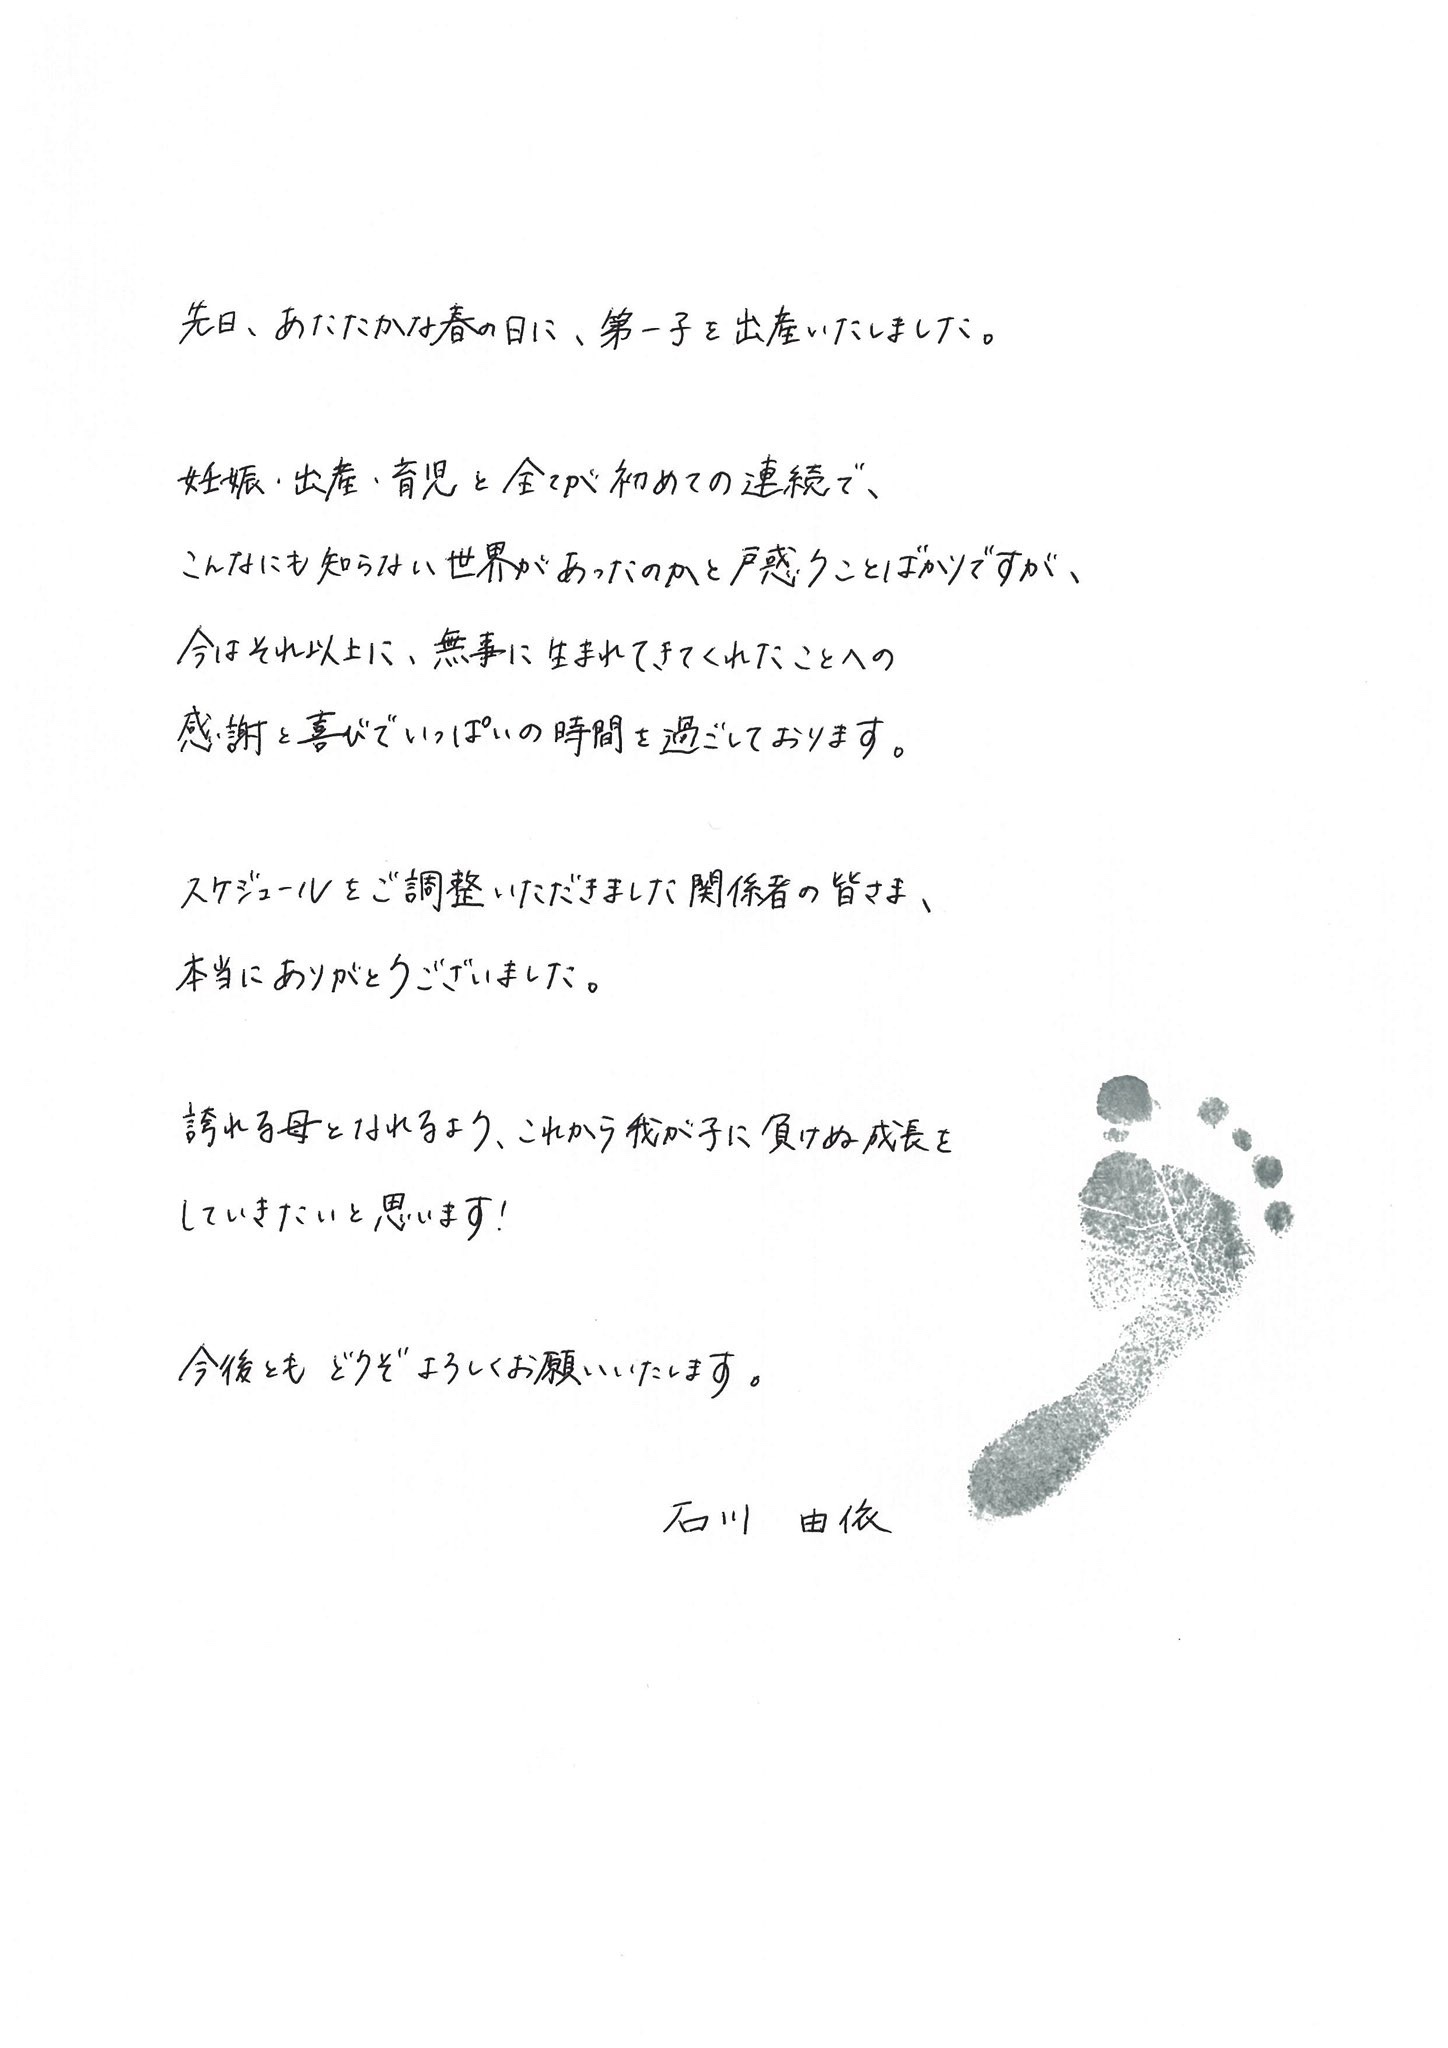 先日、あたたかな春の日に、第一子を出産いたしました。
妊娠・出産・育児と全てが初めての連続で、
こんなにも知らない世界があったのかと戸惑うことばかりですが、
今はそれ以上に、無事に生まれてきてくれたことへの
感謝と喜びでいっぱいの時間を過ごしております。
スケジュールをご調整いただきました関係者の皆さま、
本当にありがとうございました。
誇れる母となれるよう、これから我が子に負けぬ成長を
していきたいと思います!
今後とも どうぞよろしくお願いいたします。
石川 由依